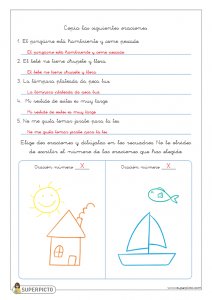 Copia las siguientes oraciones
1. El pingüino está hambriento y come pescado
El pingüino está hambriento y come pescado
2. El bebé no tiene chupete y llora
El bebé no tiene chupete y llora
3. La lámpara plateada da poca luz
La lámpara plateada da poca luz
4. Mi vestido de estes es muy largo
Mi vestido de estes es muy largo
5. No me gusta tomar jarabe para la tos
No me gusta tomar jarabe para la tos
Elige dos oraciones y dibújalas en los recuadros. No te olvides
de escribir el número de las oraciones que has elegido
Oración número X
Oración número X
SUPERPICTO
www.superpicto.com